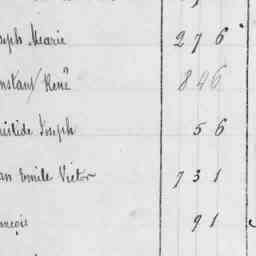 seph Marie 276
nstant René 846
ristide Joseph 56
an Emile Victor 731
ançois 91